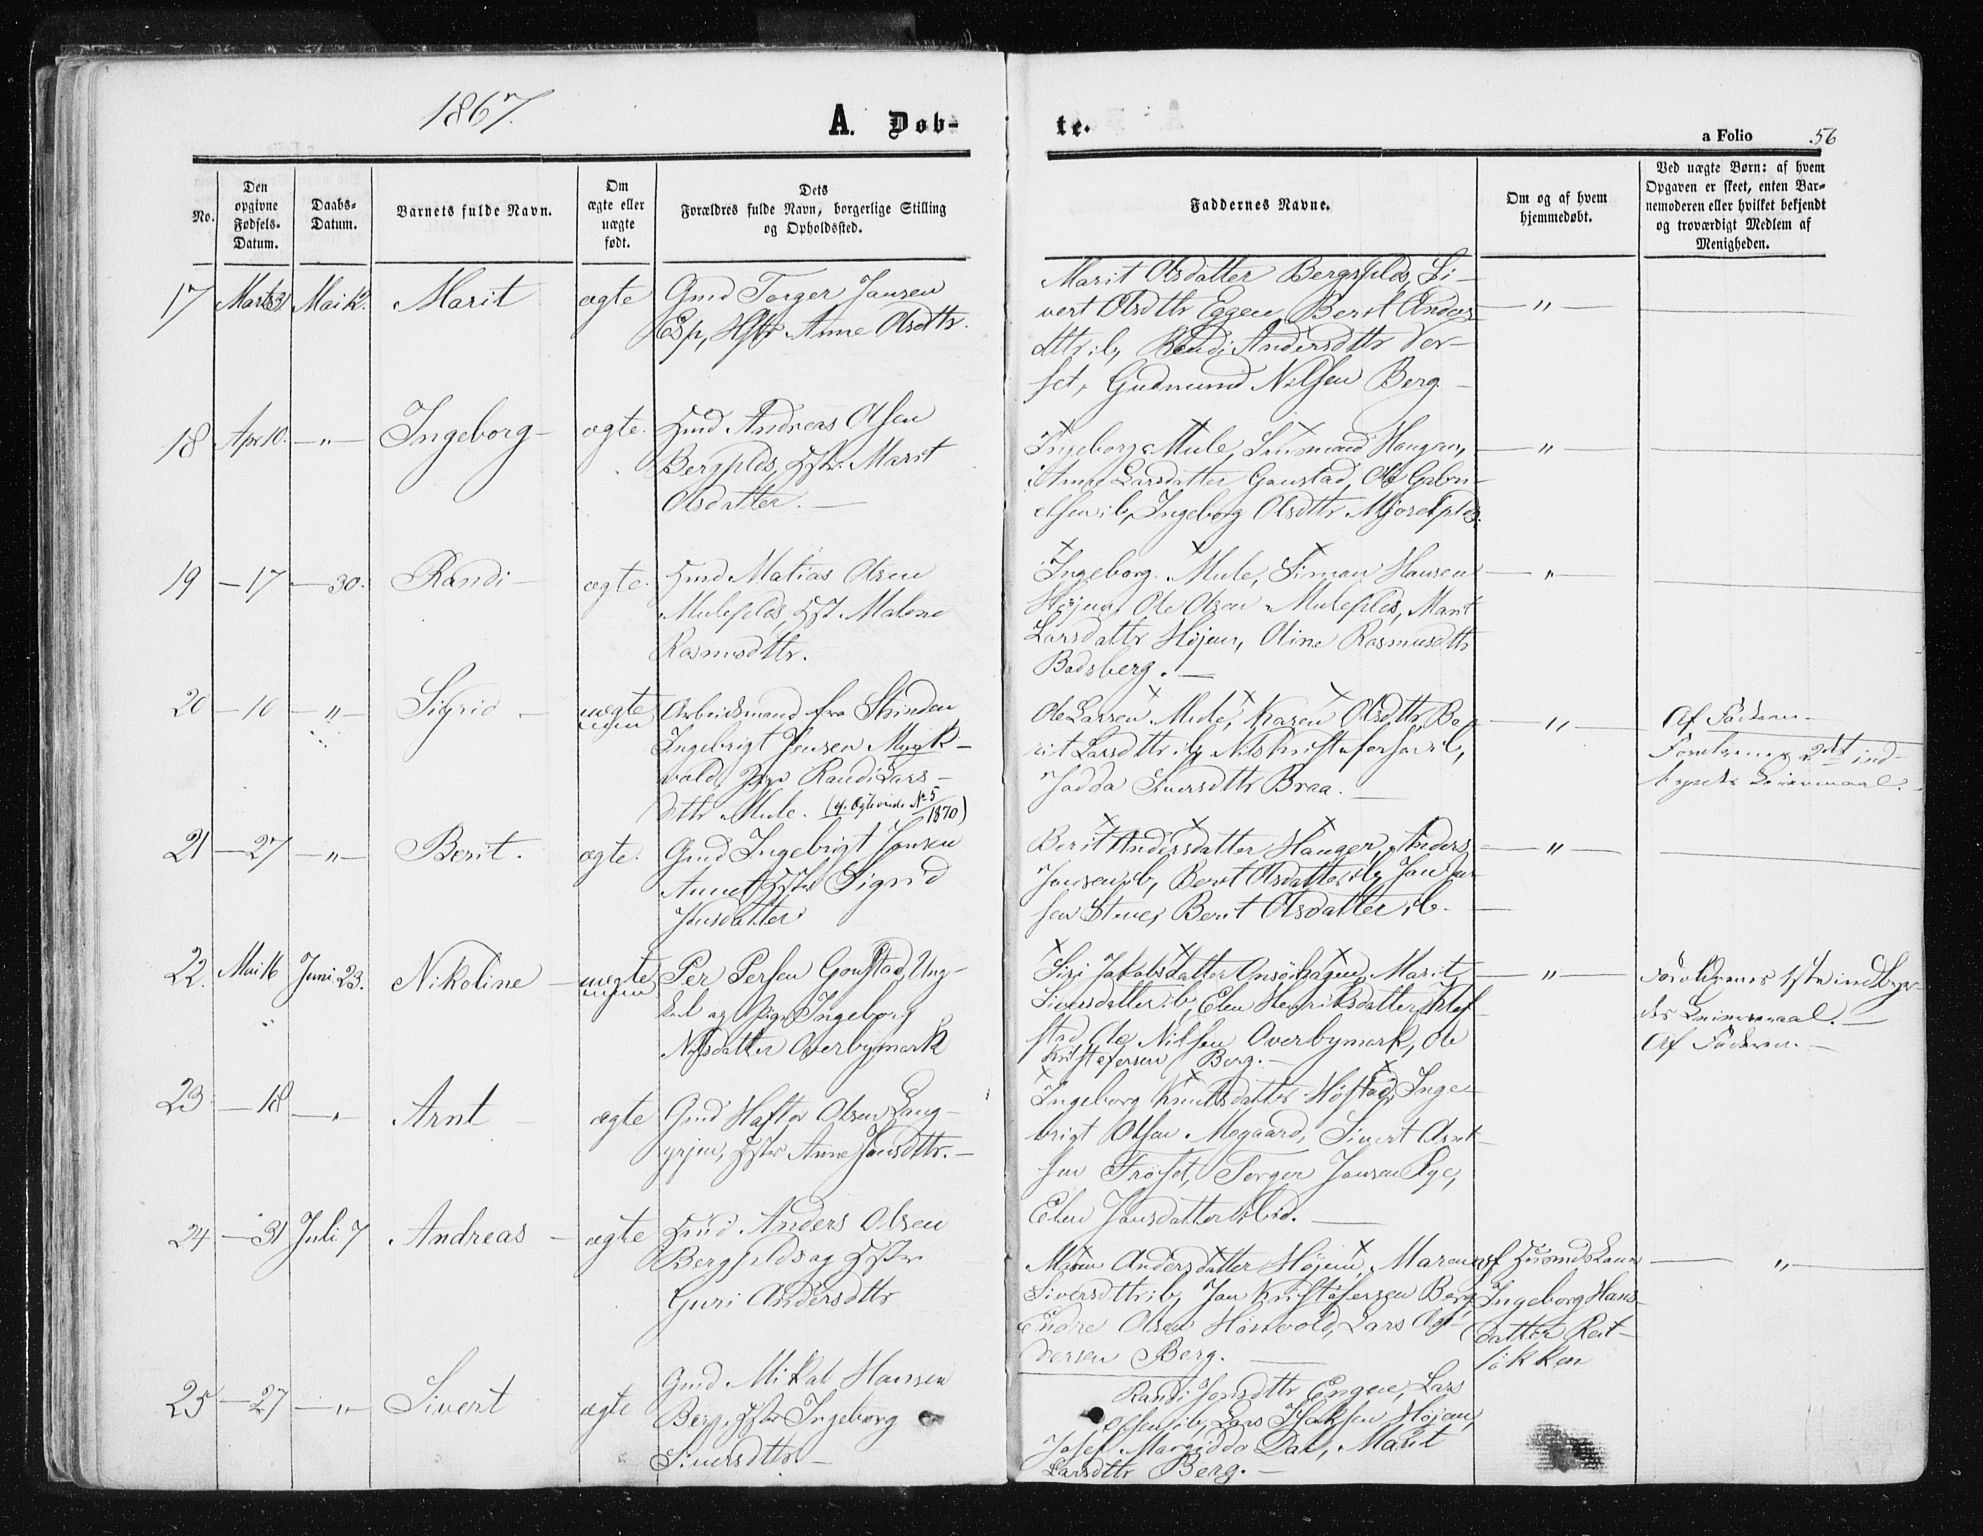 1867.
A. Døb-
te.
a Folio 56
No.
Den
opgivne
Fødsels-
Datum.
Daabs-
Datum.
Barnets fulde Navn.
Om
ægte eller
uægte
født.
Dets
Forældres fulde Navn, borgerlige Stilling
og Opholdssted.
Faddernes Navne.
Om og af hvem
hjemmedøbt.
Ved uægte Børn: af hvem
Opgaven er skeet, enten Bar-
nemoderen eller hvilket bekjendt
og troværdigt Medlem af
Menigheden.
17 Marts 31 Mai 12. Marit ægte
Gmd Torger Jansen
Esp, Anne Olsdttr.
Marit Olsdatter Bergsplds, Si-
vert Olsdttr Eggen, Berit Anders
dttr ib, Randi Andersdttr Ver-
set, Gudmund Nilsen Berg
— " —
18 Apr 10. — " — Ingeborg ægte.
Hmd Andreas Olsen
Bergsplds, Hstr. Marit
Olsdatter. —
Ingeborg Mule, Haugen,
Anne Larsdatter Gaustad, Ole
ib, Ingeborg Olsdttr
— " —
19 — 17 — 30. Randi ægte.
Hmd Matias Olsen
Muleplds, Hst. Malene
Rasmusdttr.
Ingeborg Mule, Simon Hansen
Højem, Ole Olsen Muleplds, Marit
Larsdattr Højem, Oline Rasmusdttr
Badsberg. —
— " —
20 — 10 — " — Sigrid — uægte
Arbeidsmand fra Strinden
Ingebrigt Jensen Munk-
vold, Randi Lars-
dttr Mule. (cf. No 5 1870)
Ole Larsen Mule, Karen Olsdttr Be-
rit Larsdttr ib, Nils Kristofersen ib,
Hadda Siversdttr Braa. —
— " —
Af Faderen —
Forældrenes 2det ind-
Leiermaal.
21 — 27 — " — Berit. ægte.
Gmd Ingebrigt Jonsen
Hstr Sigrid
Jonsdatter
Berit Andersdatter Hauger, Anders
Jonsen ib, Berit Olsdatter ib, Jon
sen Stene, Berit Olsdatter ib. —
— " —
22. Mai 16 Juni 23. Nikoline — uægte
Per Persen Gaustad, Ung-
karl og Pige Ingeborg
Nilsdatter Overbymark
Siri Jakobsdatter Marit
Siversdatter ib, Elen Henriksdatter
stad, Ole Nilsen Overbymark, Ole
Kristofersen Berg. —
— " —
Forældrenes 1ste
Leiermaal. —
Af Faderen. —
23 — 18 — " Arnt — ægte
Gmd Haftor Olsen Lang-
Hstr Anne Jonsdttr. —
Ingeborg Knutsdatter Høfstad, Inge-
brigt Olsen Mogaard, Sivert Arnt-
sen Frøset, Torger Jonsen Rye,
Elen Jonsdatter ibid. —
24 — 31 Juli 7 Andreas — ægte
Hmd Anders Olsen
Bergsplds og Hstr
Guri Andersdttr
Maren Andersdatter Højem, Maren
Siversdttr ib, Jon Kristofersen Berg
Endre Olsen Hønvold, Lars An-
dersen Berg. —
af Husmdskone
Ingeborg Hans-
datter Reit-
løkken
— " —
25 — 27 — " — Sivert ægte
Gmd Mikal Hansen
Berg, Hstr Ingeborg
Siversdttr —
Randi Jonsdttr Engen, Lars
Olsen ib, Lars Isaksen Højem,
Josef Dal, Marit
Larsdttr Berg. —